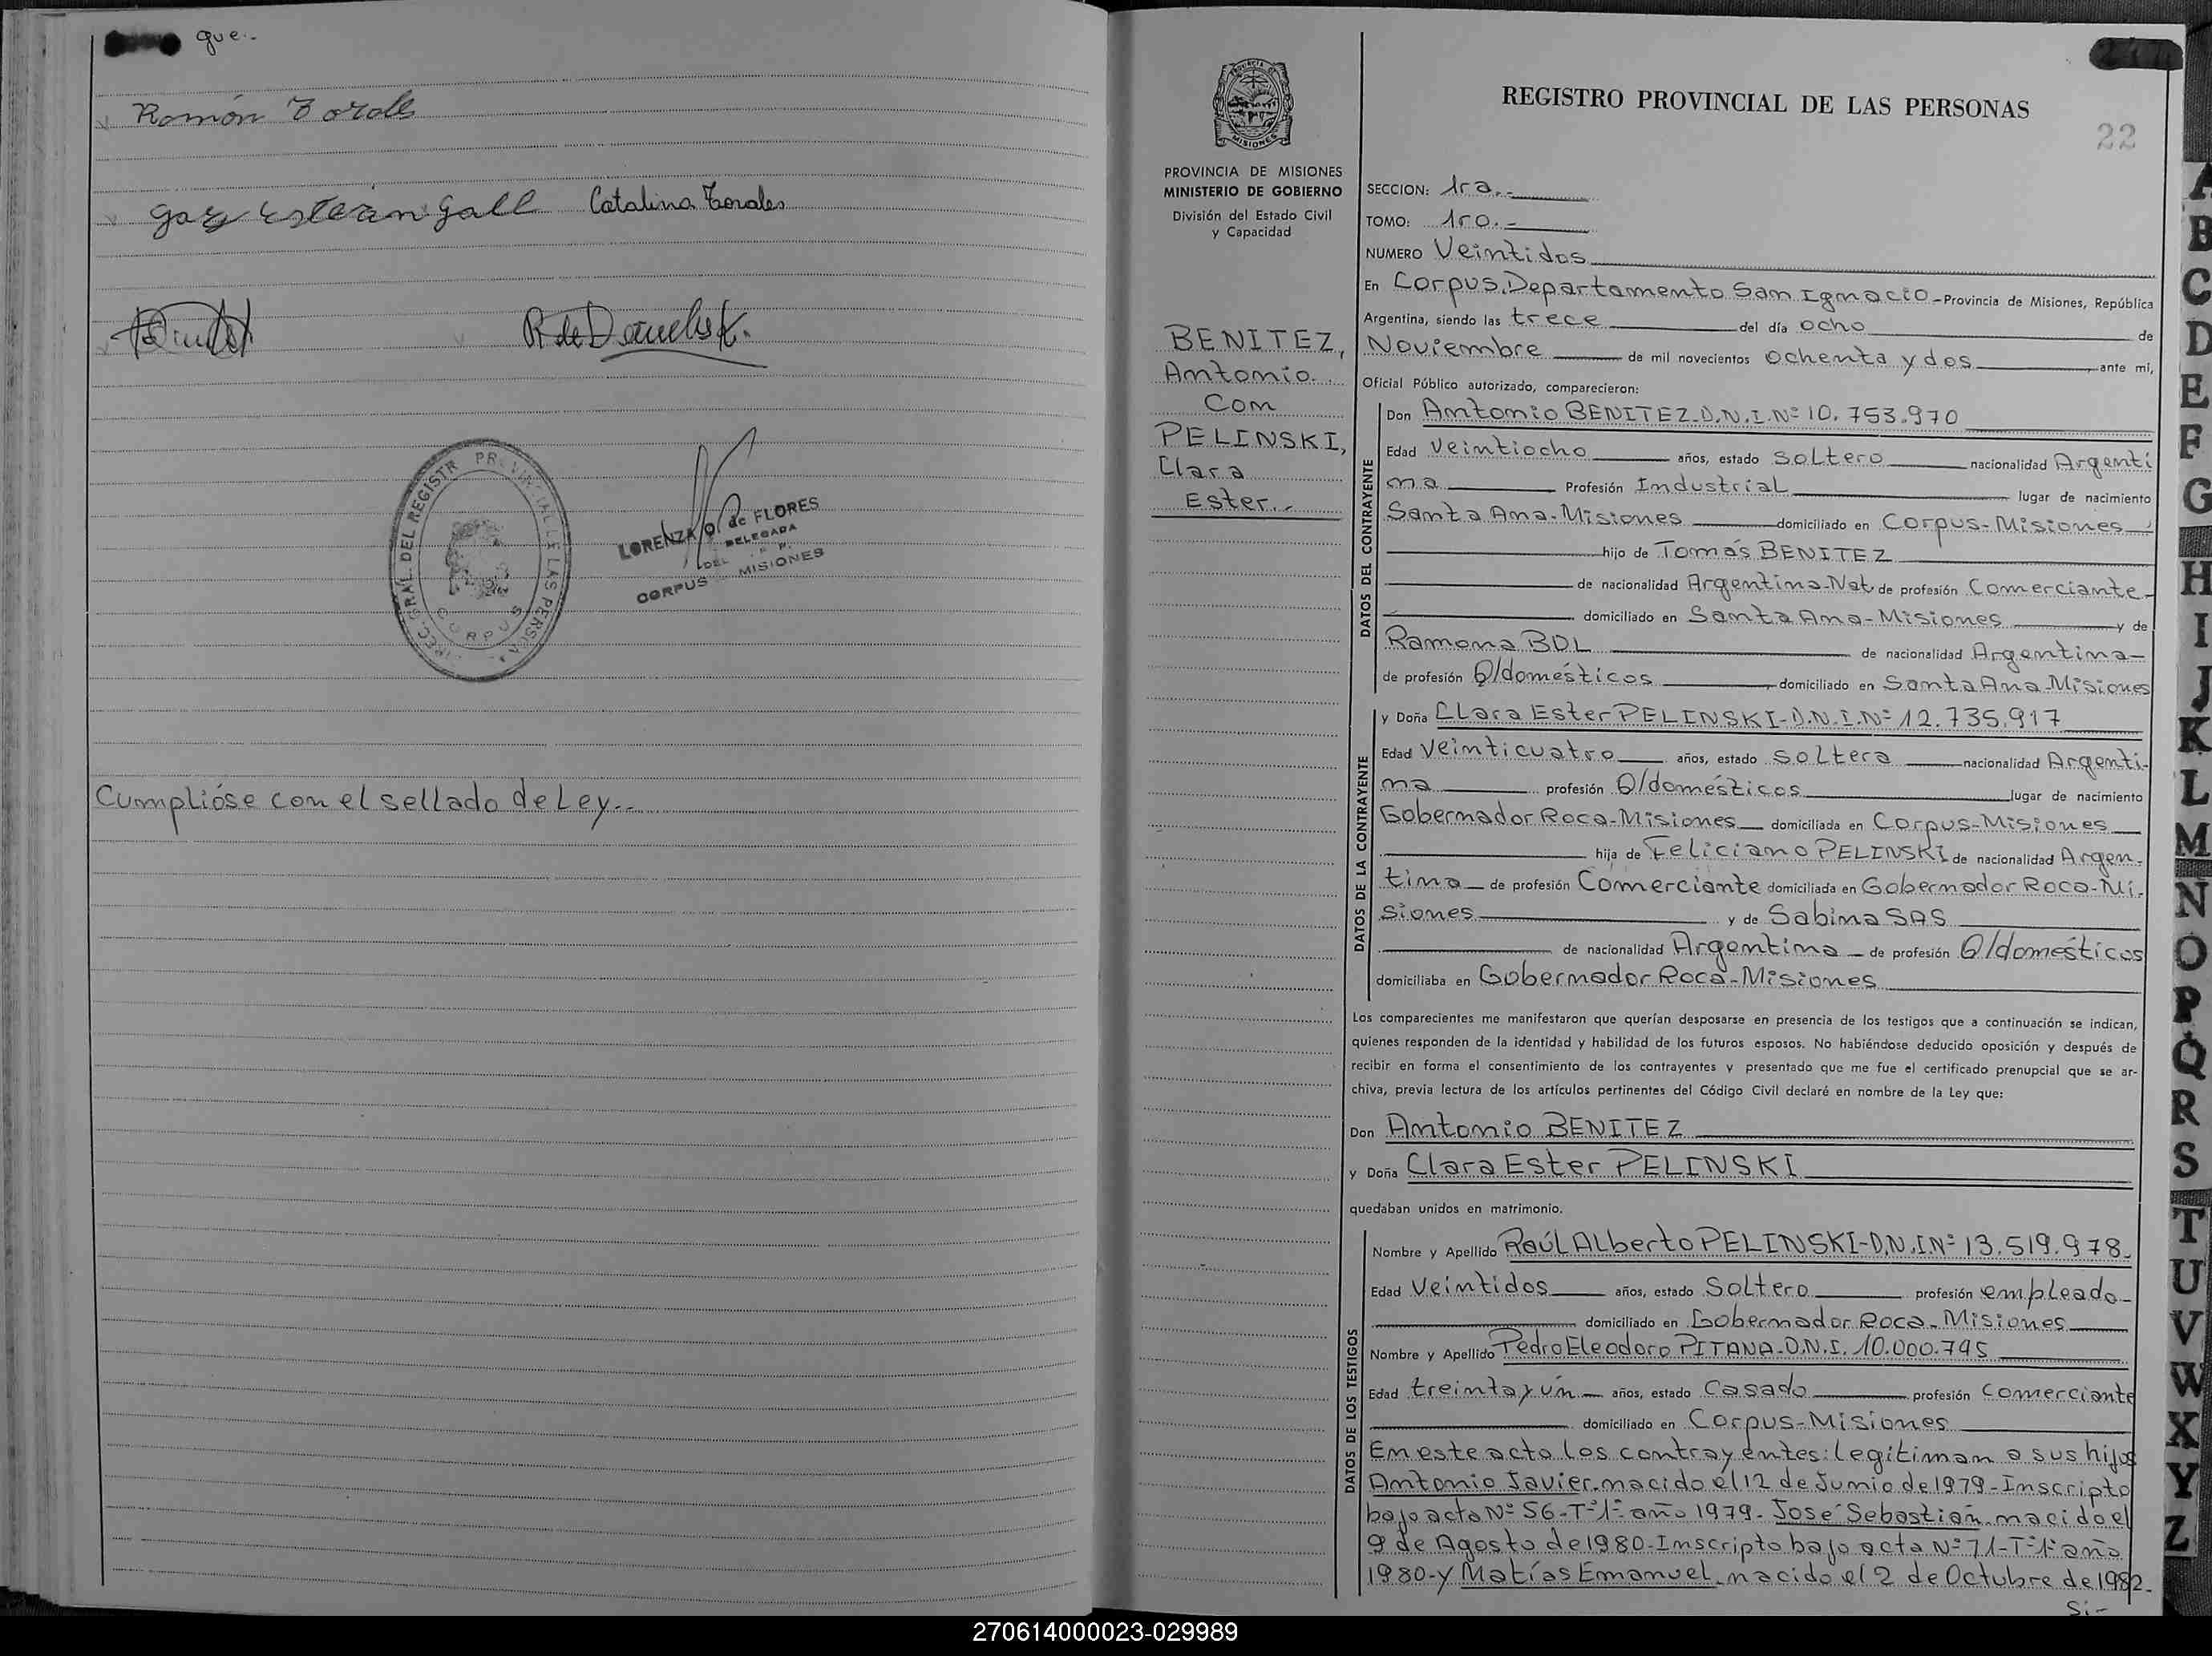 que.-
Ramón Torales
Gary Esteban Gall Catalina Torales
R de Daneluk.
DIREC. GRAL. DEL REGISTR PROVINCIAL DE LAS PERSONAS
CORPUS
LORENZA O. de FLORES
DELEGADA
CORPUS MISIONES
Cumplióse con el sellado de Ley.-
PROVINCIA DE MISIONES
PROVINCIA DE MISIONES
MINISTERIO DE GOBIERNO
División del Estado Civil
y Capacidad
BENITEZ,
Antonio.
Con
PELINSKI,
Clara
Ester.-
REGISTRO PROVINCIAL DE LAS PERSONAS
22
SECCION: 1ra.-
TOMO: 1ro.-
NUMERO Veintidos
En Corpus, Departamento San Ignacio - Provincia de Misiones, República
Argentina, siendo las trece del día ocho de
Noviembre de mil novecientos ochenta y dos ante mi,
Oficial Público autorizado, comparecieron:
DATOS DEL CONTRAYENTE
Don Antonio BENITEZ-D.N.I.Nº 10.753.970
Edad Veintiocho años, estado soltero nacionalidad Argenti
na Profesión Industrial lugar de nacimiento
Santa Ana-Misiones domiciliado en Corpus-Misiones
hijo de Tomás BENITEZ
de nacionalidad Argentina-Nat. de profesión Comerciante-
domiciliado en Santa Ana-Misiones y de
Ramona BDL de nacionalidad Argentina-
de profesión Q/domésticos domiciliado en Santa Ana-Misiones
DATOS DE LA CONTRAYENTE
y Doña Clara Ester PELINSKI-D.N.I.Nº 12.735.917
Edad Veinticuatro años, estado soltera nacionalidad Argenti-
na profesión Q/domésticos lugar de nacimiento
Gobernador Roca-Misiones domiciliada en Corpus-Misiones
hija de Feliciano PELINSKI de nacionalidad Argen-
tina de profesión Comerciante domiciliada en Gobernador Roca-Mi-
siones y de Sabina SAS
de nacionalidad Argentina de profesión Q/domésticos
domiciliaba en Gobernador Roca-Misiones
Los comparecientes me manifestaron que querían desposarse en presencia de los testigos que a continuación se indican,
quienes responden de la identidad y habilidad de los futuros esposos. No habiéndose deducido oposición y después de
recibir en forma el consentimiento de los contrayentes y presentado que me fue el certificado prenupcial que se ar-
chiva, previa lectura de los artículos pertinentes del Código Civil declaré en nombre de la Ley que:
Don Antonio BENITEZ
y Doña Clara Ester PELINSKI
quedaban unidos en matrimonio.
DATOS DE LOS TESTIGOS
Nombre y Apellido Raúl Alberto PELINSKI-D.N.I.Nº 13.519.978.
Edad Veintidos años, estado Soltero profesión empleado-
domiciliado en Gobernador Roca-Misiones
Nombre y Apellido Pedro Eleodoro PITANA-D.N.I. 10.000.795
Edad treinta y un años, estado Casado profesión Comerciante
domiciliado en Corpus-Misiones
En este acto los contrayentes: legitiman a sus hijos
Antonio Javier-nacido el 12 de Junio de 1979-Inscripto
bajo acta Nº 56-Tº1º año 1979- José Sebastián nacido el
9 de Agosto de 1980-Inscripto bajo acta Nº 71-Tº1º año
1980-y Matías Emanuel-nacido el 2 de Octubre de 1982-
Si-
A
B
C
D
E
F
G
H
I
J
K
L
M
N
O
P
Q
R
S
T
U
V
W
X
Y
Z
270614000023-029989